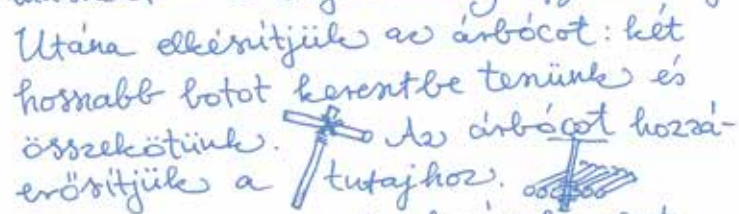 Utána elkészítjük az árbócot: két
hosszabb botot keresztbe teszünk és
összekötünk. Az árbócot hozzá-
erősítjük a tutajhoz.